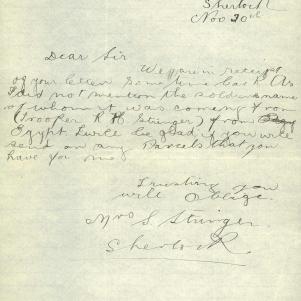 Sherlock
Nov 30th
Dear Sir
We are in receipt
of your letter some time back As
I did not mention the soldiers name
of whom it was coming from
(Trooper R H Stringer) from
Egypt I will be glad if you will
send on any Parcels that you
have for me
Trusting you
will oblige.
Mrs S Stringer
Sherlock